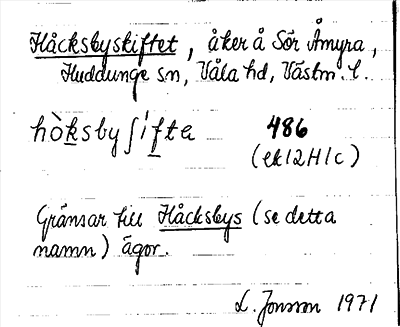 Håcksbyskiftet, åker å Sör Åmyra,
Huddunge sn, Våla hd, Västm. l.
hò̀ksbyʃíftə 486
(ek12H1c)
Gränsar till Håcksbys (se detta
namn) ägor.
L. Jonsson 1971